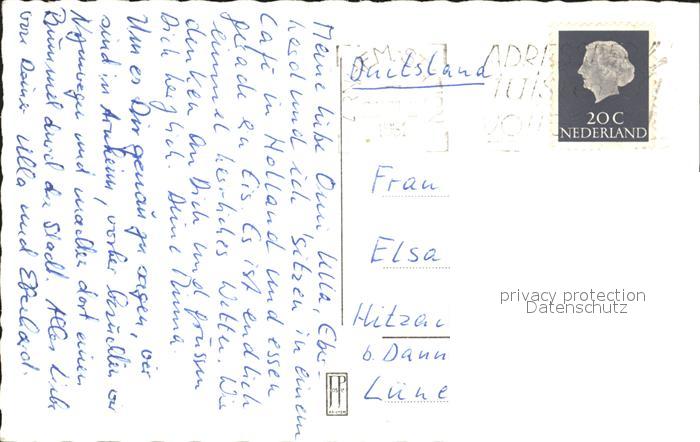 Meine liebe Omi, Ulla, Eber-
hard und ich sitzen in einem
Café in Holland und essen
gerade ein Eis. Es ist endlich
einmal herrliches Wetter. Wir
denken an Dich und grüssen
Dich herzlich. Deine Mama.
Um es Dir genau zu sagen, wir
sind in Arnheim, vorher besuchten wir
Nymwegen und machten dort einen
Bummel durch die Stadt. Alles Liebe
von Deiner Ulla und Eberhard.
Duitsland
ADRE
20 C
NEDERLAND
Frau
Elsa
Hitzac
b. Dann
Lüne
privacy protection
Datenschutz
JosPé